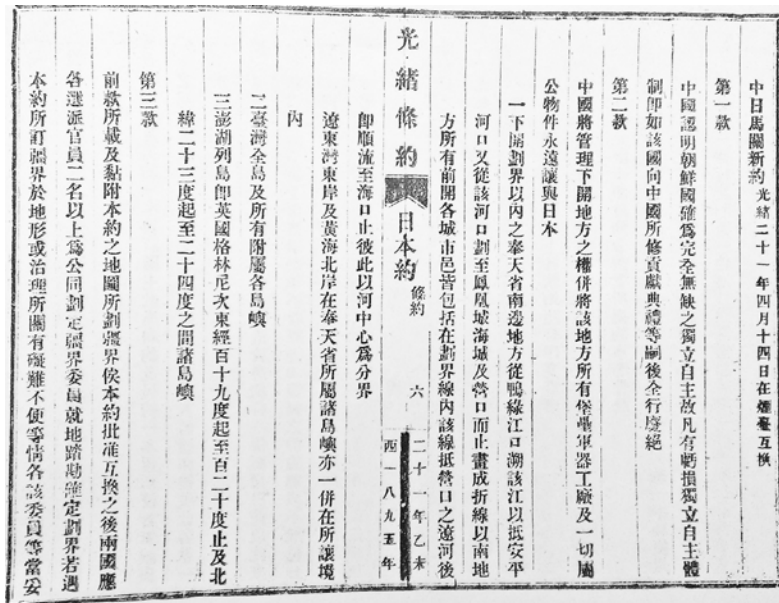 中日馬關新約 光緒二十一年四月十四日在煙臺互換
第一款
中國認明朝鮮國確爲完全無缺之獨立自主故凡有虧損獨立自主體
制即如該國向中國所修貢獻典禮等嗣後全行廢絕
第二款
中國將管理下開地方之權併將該地方所有堡壘軍器工廠及一切屬
公物件永遠讓與日本
一下開劃界以內之奉天省南邊地方從鴨綠江口溯該江以抵安平
河口又從該河口劃至鳳凰城海城及營口而止畫成折線以南地
方所有前開各城市邑皆包括在劃界線內該線抵營口之遼河後
光緒條約 日本約 條約 六 二十一年乙未
西一八九五年
即順流至海口止彼此以河中心爲分界
遼東灣東岸及黃海北岸在奉天省所屬諸島嶼亦一併在所讓境
內
二臺灣全島及所有附屬各島嶼
三澎湖列島即英國格林尼次東經百十九度起至百二十度止及北
緯二十三度起至二十四度之間諸島嶼
第三款
前款所載及黏附本約之地圖所劃疆界俟本約批准互換之後兩國應
各選派官員二名以上爲公同劃定疆界委員就地踏勘確定劃界若遇
本約所訂疆界於地形或治理所關有礙難不便等情各該委員等當妥